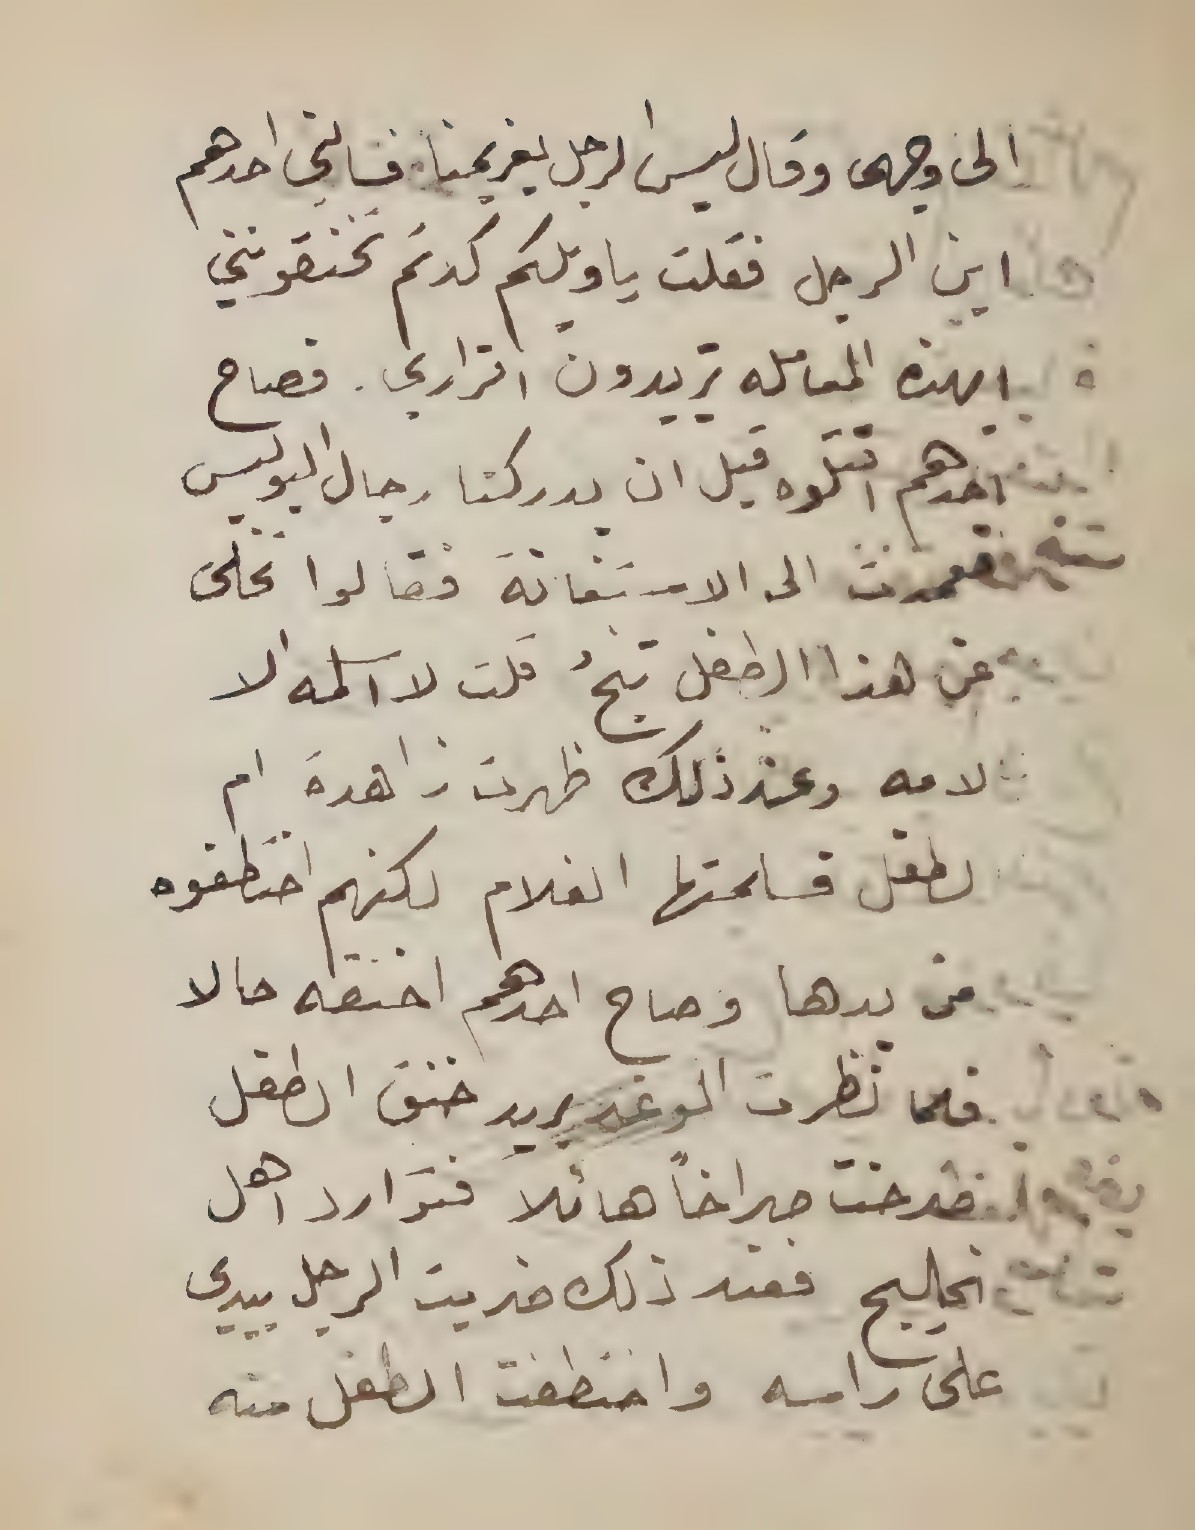 الى وجهى وقال ليس الرجل بغريمنا فسالني احدهم
اين الرجل فقلت ياويلكم كدتم تخنقونني
ابهذه المعامله تريدون اقراري . فصاح
احدهم اقتلوه قبل ان يدركنا رجال البوليس
فعمدت الى الاستغاثة فقالوا تخلى
عن هذا الطفل تنجُ قلت لا اسلمه الا
لامه وعند ذلك ظهرت زاهدة ام
لطفل فسلمتها الغلام لكنهم اختطفوه
من يدها وصاح احدهم اخنقه حالا
فلما نظرت الوغد يريد خنق الطفل
صرخت صراخاً هائلا فتوارد اهل
الخليج فعند ذلك ضربت الرجل بيدى
على راسه واختطفت الطفل منه